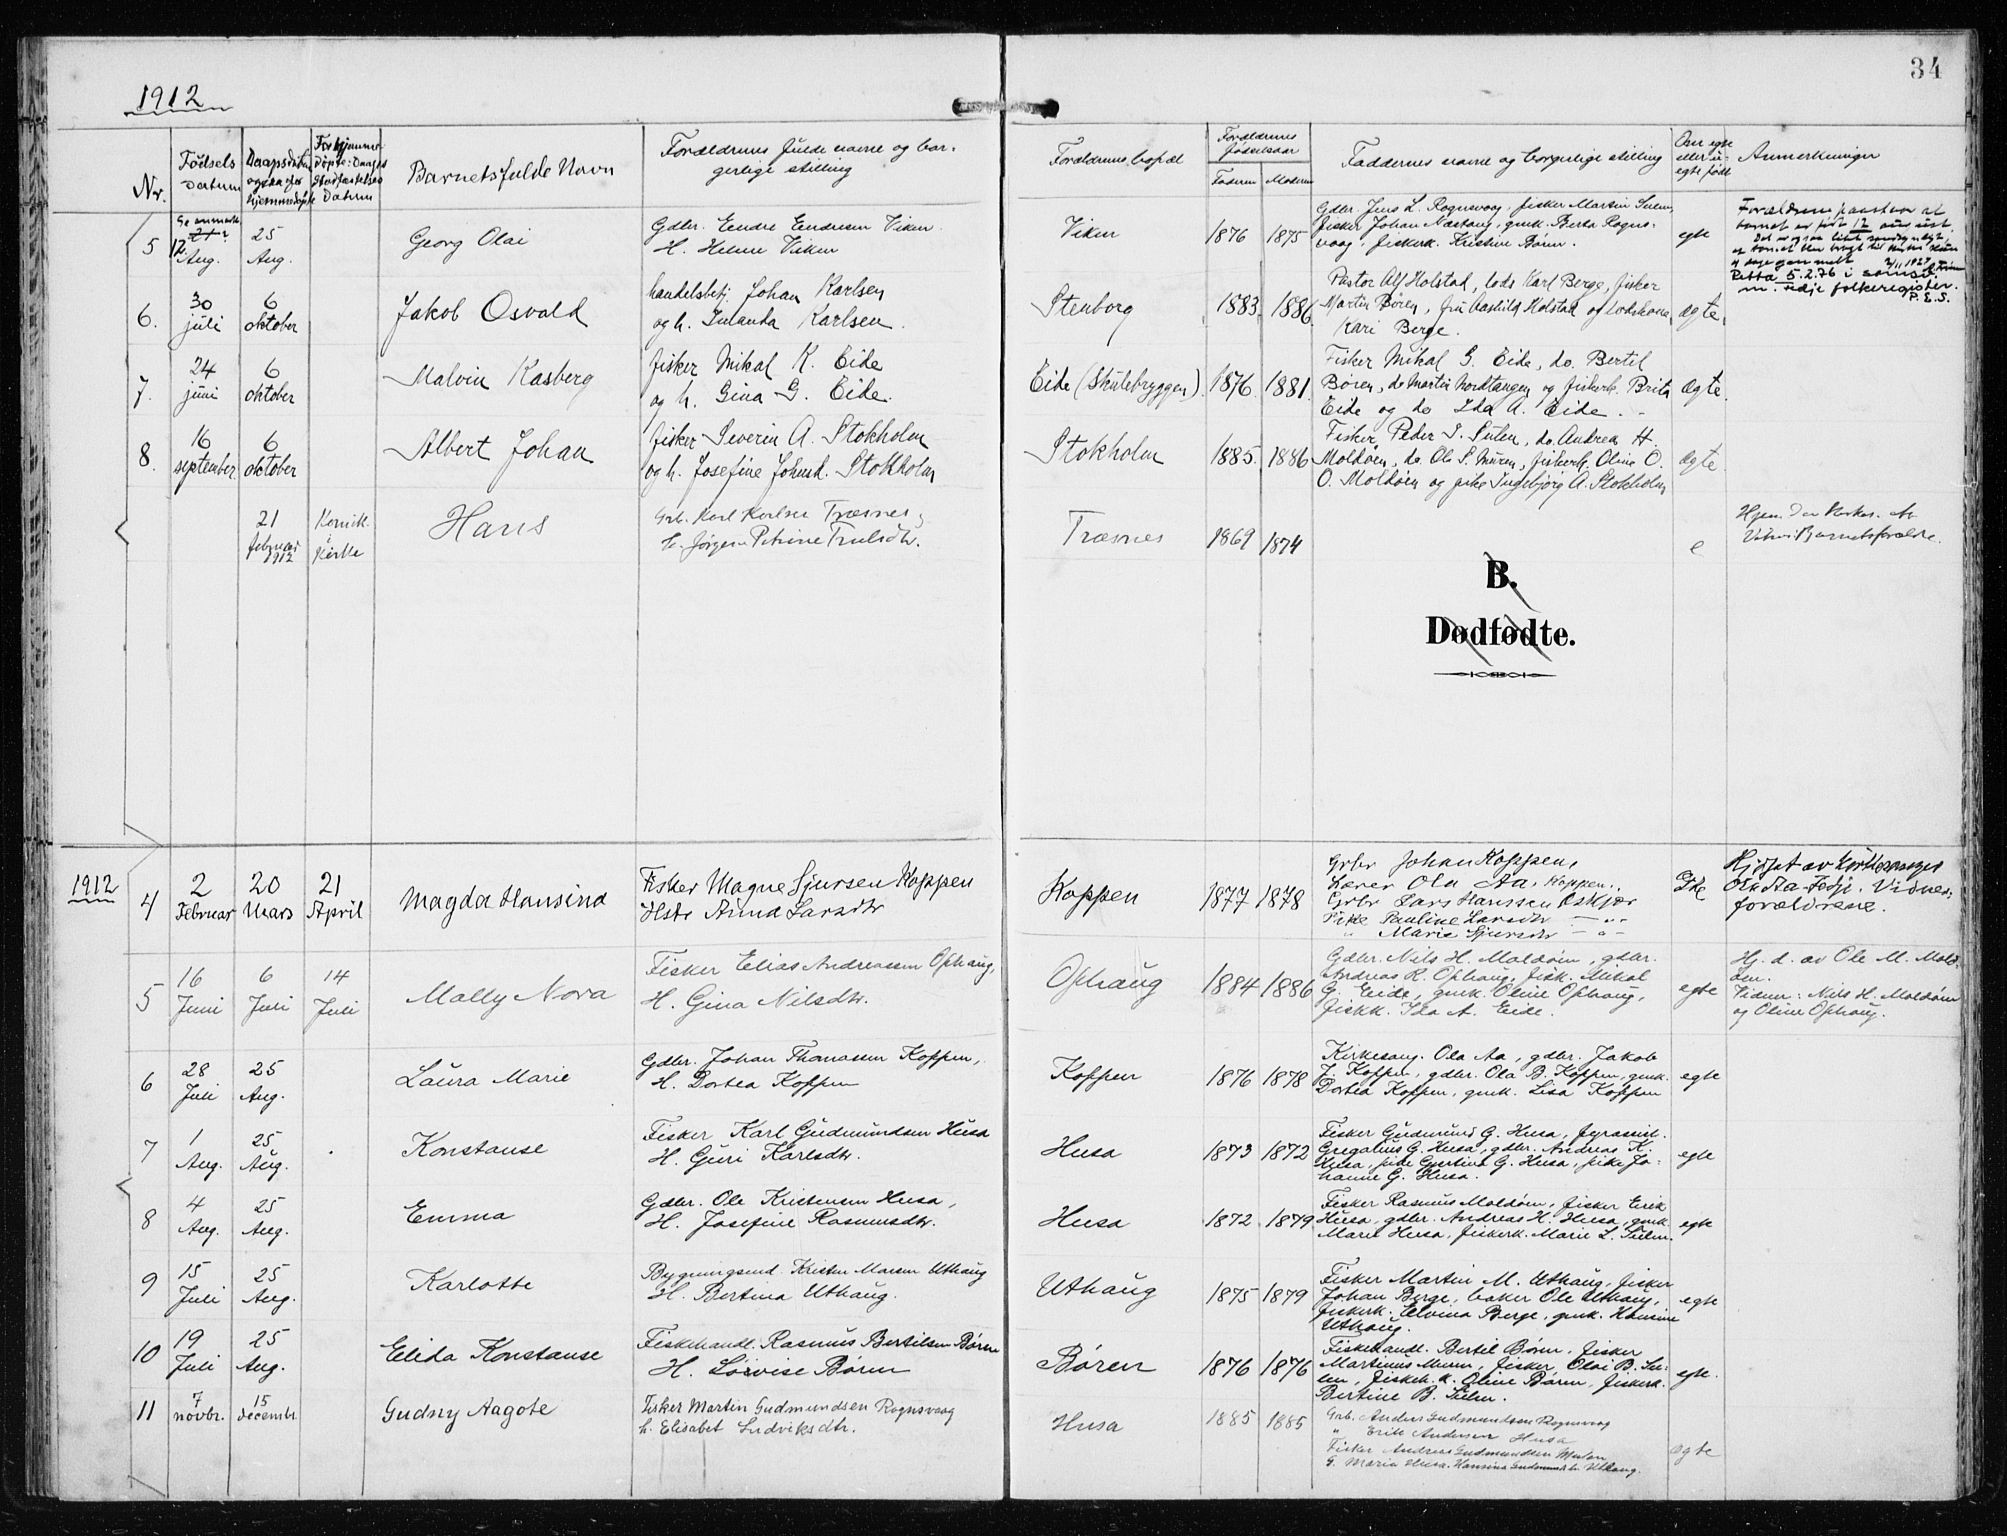 34
1912
Nr.
Fødsels Datum
Daapsdatum
Datum
Barnets fulde Navn
Forældrenes fulde navne og bor-
gerlige stilling
Forældrenes bopæl
Forældrenes fødselsaar
Faderen Moderen
Faddernes navne og borgerlige stilling
Om egte eller u-egte født
Anmerkninger
5
12 Aug.
25 Aug.
Georg Olai
Gdbr. Endre Endresen Viken
H. Helene Viken
Viken
1876 1875
Gdbr. Jens L. Rognsvaag, fisker Martin Sulen,
fisker Johan Nostang, gmk. Berta Rogns-
vaag, fiskerk. Kristine Børen.
egte
Forældrene paastaar at
barnet er født 12 aug.
Retta 5.2.76 i
folkeregister.
P.E.S.
6.
30 juli
6 oktober
Jakob Osvald
handelsbetj. Johan Karlsen
og h. Karlsen.
Stenborg
1883. 1886.
Pastor Alf Holstad, lods Karl Berge, fisker
Martin Børen, fru Aashild Holstad og lodskone
Kari Berge.
Ægte.
7.
24 juni
6 oktober
Malvin Kasberg
fisker Mikal K. Eide
og h. Gina G. Eide.
Eide (Skutebryggen)
1876. 1881.
Fisker Mikal G. Eide, do. Bertel
Børen, do Martin Nordtangen og fiskerk. Brita
Eide og do Ida A. Eide.
Ægte.
8.
16 september
6 oktober
Albert Johan
fisker Severin A. Stokholm
og h. Josefine Johnsd. Stokholm
Stokholm
1885. 1886
Fisker Peder S. Sulen, do. Andrea H.
Moldøen, do. Ole S. Muren, fiskerk. Oline O.
O. Moldøen og pike Ingebjørg A. Stokholm
Ægte.
21 februar 1912
Kirke
Hans
Grb. Karl Karlsen Træsnes,
H. Jørgene Petrine Trulsdtr.
Træsnes
1869 1874
e
B.
Dødfødte.
1912
4
2 Februar
20 Mars
21 April
Magda Hansine
Fisker Magne Sjursen Koppen
Hst. Anna Larsdtr
Koppen
1877 1878
Grbr Johan Koppen,
Lærer Ola Aa, Koppen.
Grbr Lars Hanssen Oskjær
Pike Pauline Larsdtr — " -
" Marie Sjursdtr — " -
Hjdøpt av
Ola Aa - Fedje. Vidner,
forældrene.
5
16 Juni
6 Juli
14 Juli
Mally Nora
Fisker Elias Andreassen Ophaug,
H. Gina Nilsdtr.
Ophaug
1884 1886
Gdbr. Nils H. Moldøen, gdbr.
Andreas R. Ophaug, fisk. Mikal
G. Eide, gmk. Oline Ophaug,
fiskk. Ida A. Eide.
egte
Hj. d. av Ole M. Mold-
øen.
Vidner: Nils H. Moldøen
og Oline Ophaug.
6
28 Juli
25 Aug.
Laura Marie
Gdbr. Johan Thomassen Koppen,
H. Dortea Koppen
Koppen
1876 1878
Kirkesang. Ola Aa, gdbr. Jakob
J. Koppen, gdbr. Ola B. Koppen, gmk.
Dortea Koppen, gmk. Lisa Koppen
egte
7
1 Aug.
25 Aug.
Konstanse
Fisker Karl Gudmundsen Husa
H. Guri Karlsdtr.
Husa
1873 1872
Fisker Gudmund G. Husa, fyrassist.
Gregalius G. Husa, gdbr. Andreas K.
Husa, pike Gjertine G. Husa, pike Jo-
hanne G. Husa.
egte
8
4 Aug.
25 Aug.
Emma
Gdbr. Ole Kristensen Husa,
H. Josefine Rasmusdtr.
Husa
1872 1879
Fisker Rasmus Moldøen, fisker Erik
Husa, gdbr. Andreas K. Husa, gmk.
Marie Husa, fiskerk. Marie L. Sulen.
egte
9
15 Juli
25 Aug.
Karlotte
Bygningsmd. Kristen Monsen Uthaug
H. Bertina Uthaug.
Uthaug
1875 1879
Fisker Martin M. Uthaug, fisker
Johan Berge, baker Ole Uthaug,
fiskerk. Elvina Berge, gmk. Hansine
Uthaug.
egte
10
19 Juli
25 Aug.
Elida Konstanse
Fiskehandl. Rasmus Bertilsen Børen
H. Lovise Børen
Børen
1876 1876
Fiskehandl. Bertil Børen, fisker
Martinus Muren, fisker Olai B. Su-
len, fiskeh.k. Oline Børen, fiskerk.
Bertine B. Sulen.
egte.
11
7 novbr.
15 decembr.
Gudny Aagote
Fisker Martin Gudmundsen Rognsvaag
h. Elisabet Ludviksdtr.
Husa
1885 1885
Grb. Anders Gudmundsen Rognsvaag
" Erik Andersen Husa
Fisker Andreas Gudmundsen
G. Marie Husa. Hansine Gudmunds. Uthaug.
ægte